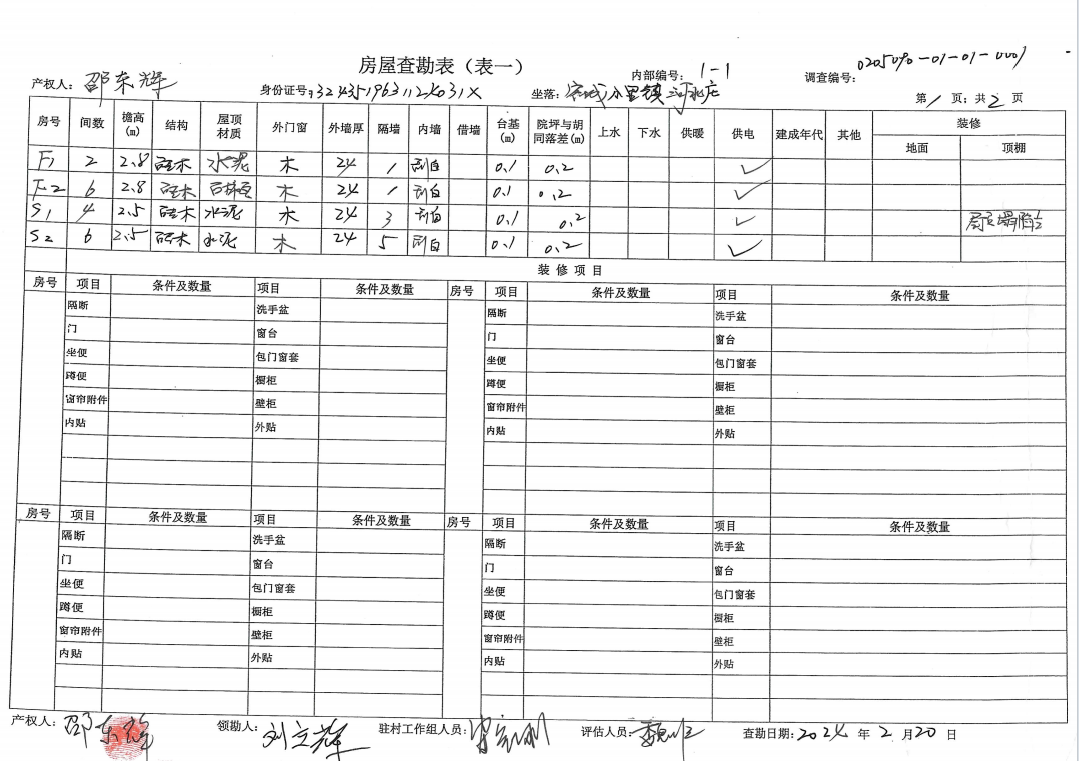 房屋查勘表（表一）
产权人：邵东辉 身份证号：3243519631124031X 坐落： 内部编号：1-1 调查编号：0205090-01-01-0001
第1页；共2页
房号 间数 檐高(m) 结构 屋顶材质 外门窗 外墙厚 隔墙 内墙 借墙 台基(m) 院坪与胡同落差(m) 上水 下水 供暖 供电 建成年代 其他 装修
地面 顶棚
F1 2 2.8 砖木 水泥 木 24 1 刮白 0.1 0.2 ✓
F2 6 2.8 砖木 石棉瓦 木 24 1 刮白 0.1 0.2 ✓
S1 4 2.5 砖木 水泥 木 24 3 刮白 0.1 0.2 ✓
S2 6 2.5 砖木 水泥 木 24 5 刮白 0.1 0.2 ✓
装修项目
房号 项目 条件及数量 项目 条件及数量 房号 项目 条件及数量 项目 条件及数量
隔断 洗手盆 隔断 洗手盆
门 窗台 门 窗台
坐便 包门窗套 坐便 包门窗套
蹲便 橱柜 蹲便 橱柜
窗帘附件 壁柜 窗帘附件 壁柜
内贴 外贴 内贴 外贴
房号 项目 条件及数量 项目 条件及数量 房号 项目 条件及数量 项目 条件及数量
隔断 洗手盆 隔断 洗手盆
门 窗台 门 窗台
坐便 包门窗套 坐便 包门窗套
蹲便 橱柜 蹲便 橱柜
窗帘附件 壁柜 窗帘附件 壁柜
内贴 外贴 内贴 外贴
产权人：邵东辉 领勘人：刘立辉 驻村工作组人员： 评估人员： 查勘日期：2024年2月20日